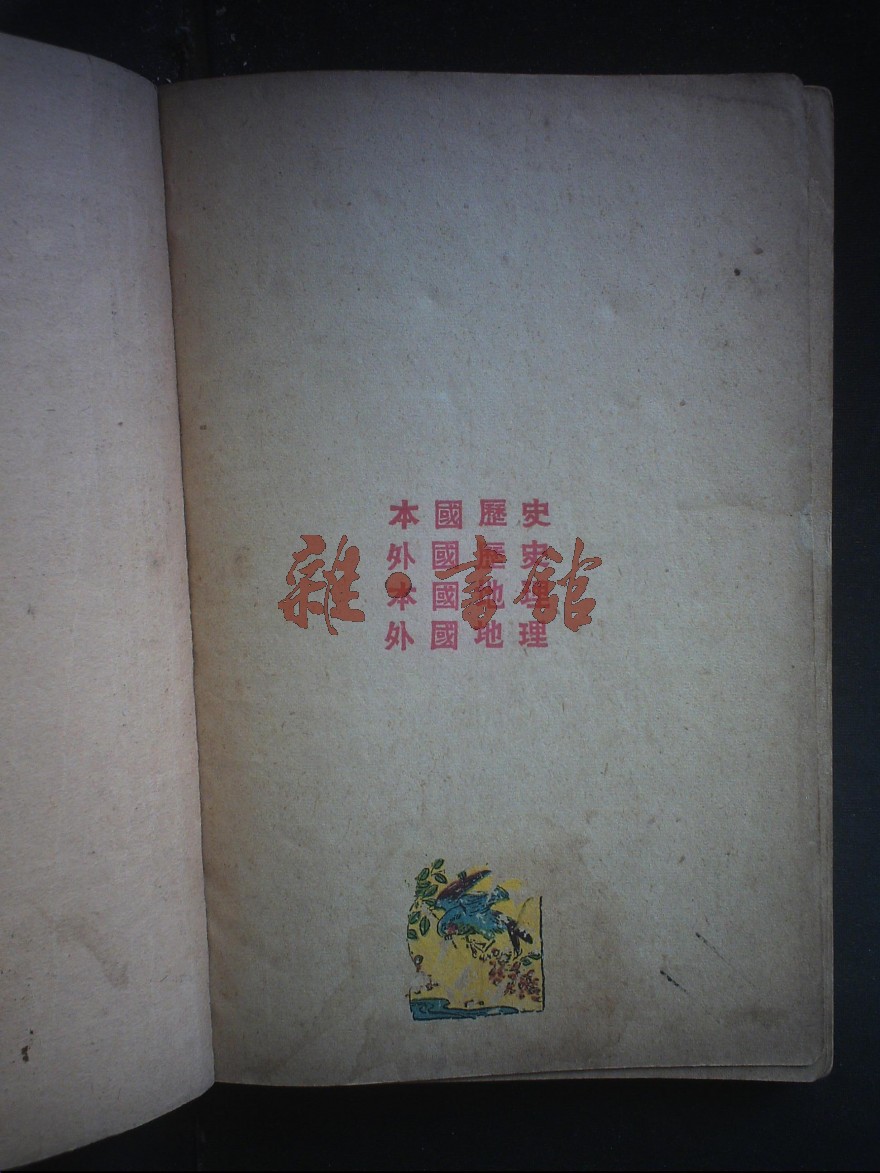 本國歷史
外國歷史
本國地理
外國地理
雜·書館